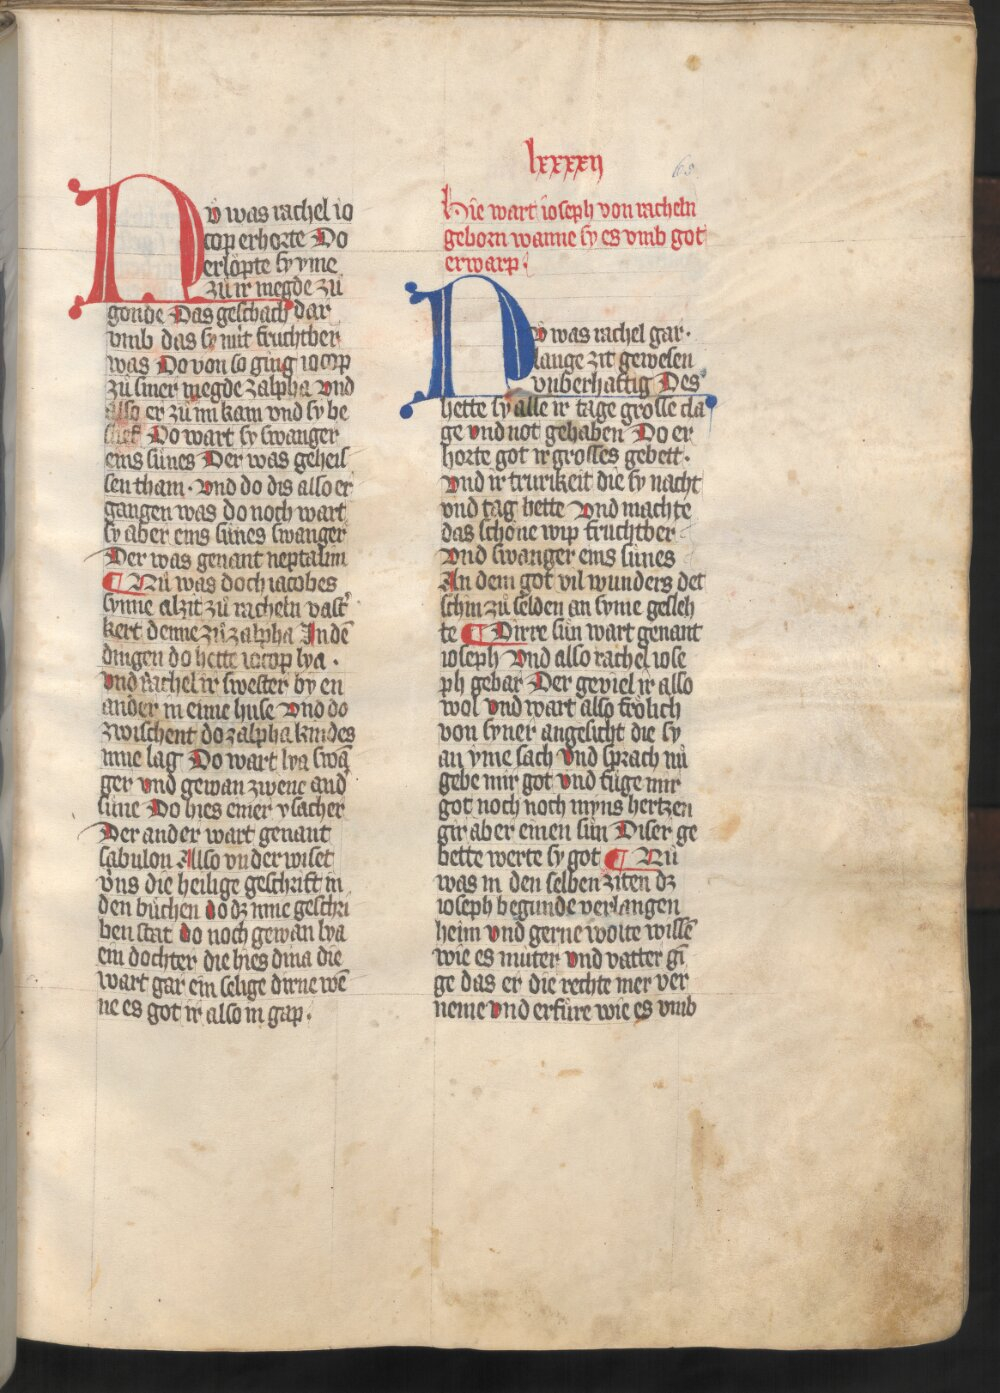 lxxxxij
69
Do was rachel io
cop erhorte Do
erlopte sy yme
zuͦ ir megde zuͦ
gonde Das geschach dar
vmb das sy nüt fruchtber
was Do von so ging iocop
zuͦ siner megde zalpha vnd
also er zuͦ im kam vnd sy be
slief Do wart sy swanger
eins sünes Der was geheis
sen tham · vnd do dis also er
gangen was do noch wart
sy aber eins sünes swanger
Der was genant neptalim
¶ Nuͦ was doch iacobes
synne alzit zuͦ racheln vast
kert denne zuͦ zalpha In dē
dingen do hette iocop lya ·
vnd rachel ir swester by en
ander in eime huse vnd do
zwischent do zalpha kindes
inne lag Do wart lya swā
ger vnd gewan zwene and
süne Do hies einer ysacher
Der ander wart genant
sabulon Also vnderwiset
vns die heilige geschrift in
den buͤchen do dz inne geschri
ben stat do noch gewan lya
ein dochter die hies dina die
wart gar ein selige dirne wē
ne es got ir also in gap ·
Hie wart ioseph von racheln
geborn wanne sy es vmb got
erwarp ·
Do was rachel gar ·
lange zit gewesen
vnberhaftig Des
hette sy alle ir tage grosse cla
ge vnd not gehaben Do er
horte got ir grosses gebett ·
vnd ir trurikeit die sy nacht
vnd tag hette vnd machte
das schöne wip fruchtber
vnd swanger eins sünes
An dem got vil wunders det
schin zuͦ selden an syme gesleh
te ¶ Dirre sün wart genant
ioseph vnd also rachel iose
ph gebar Der geviel ir also
wol vnd wart also frölich
von syner angesicht die sy
an yme sach vnd sprach nuͦ
gebe mir got vnd füge mir
got noch noch myns hertzen
gir aber einen sün Diser ge
bette werte sy got ¶ Nuͦ
was in den selben ziten dz
ioseph begunde verlangen
heim vnd gerne wolte wissē
wie es muter vnd vatter gī
ge das er die rechte mer ver
neme vnd erfüre wie es vmb